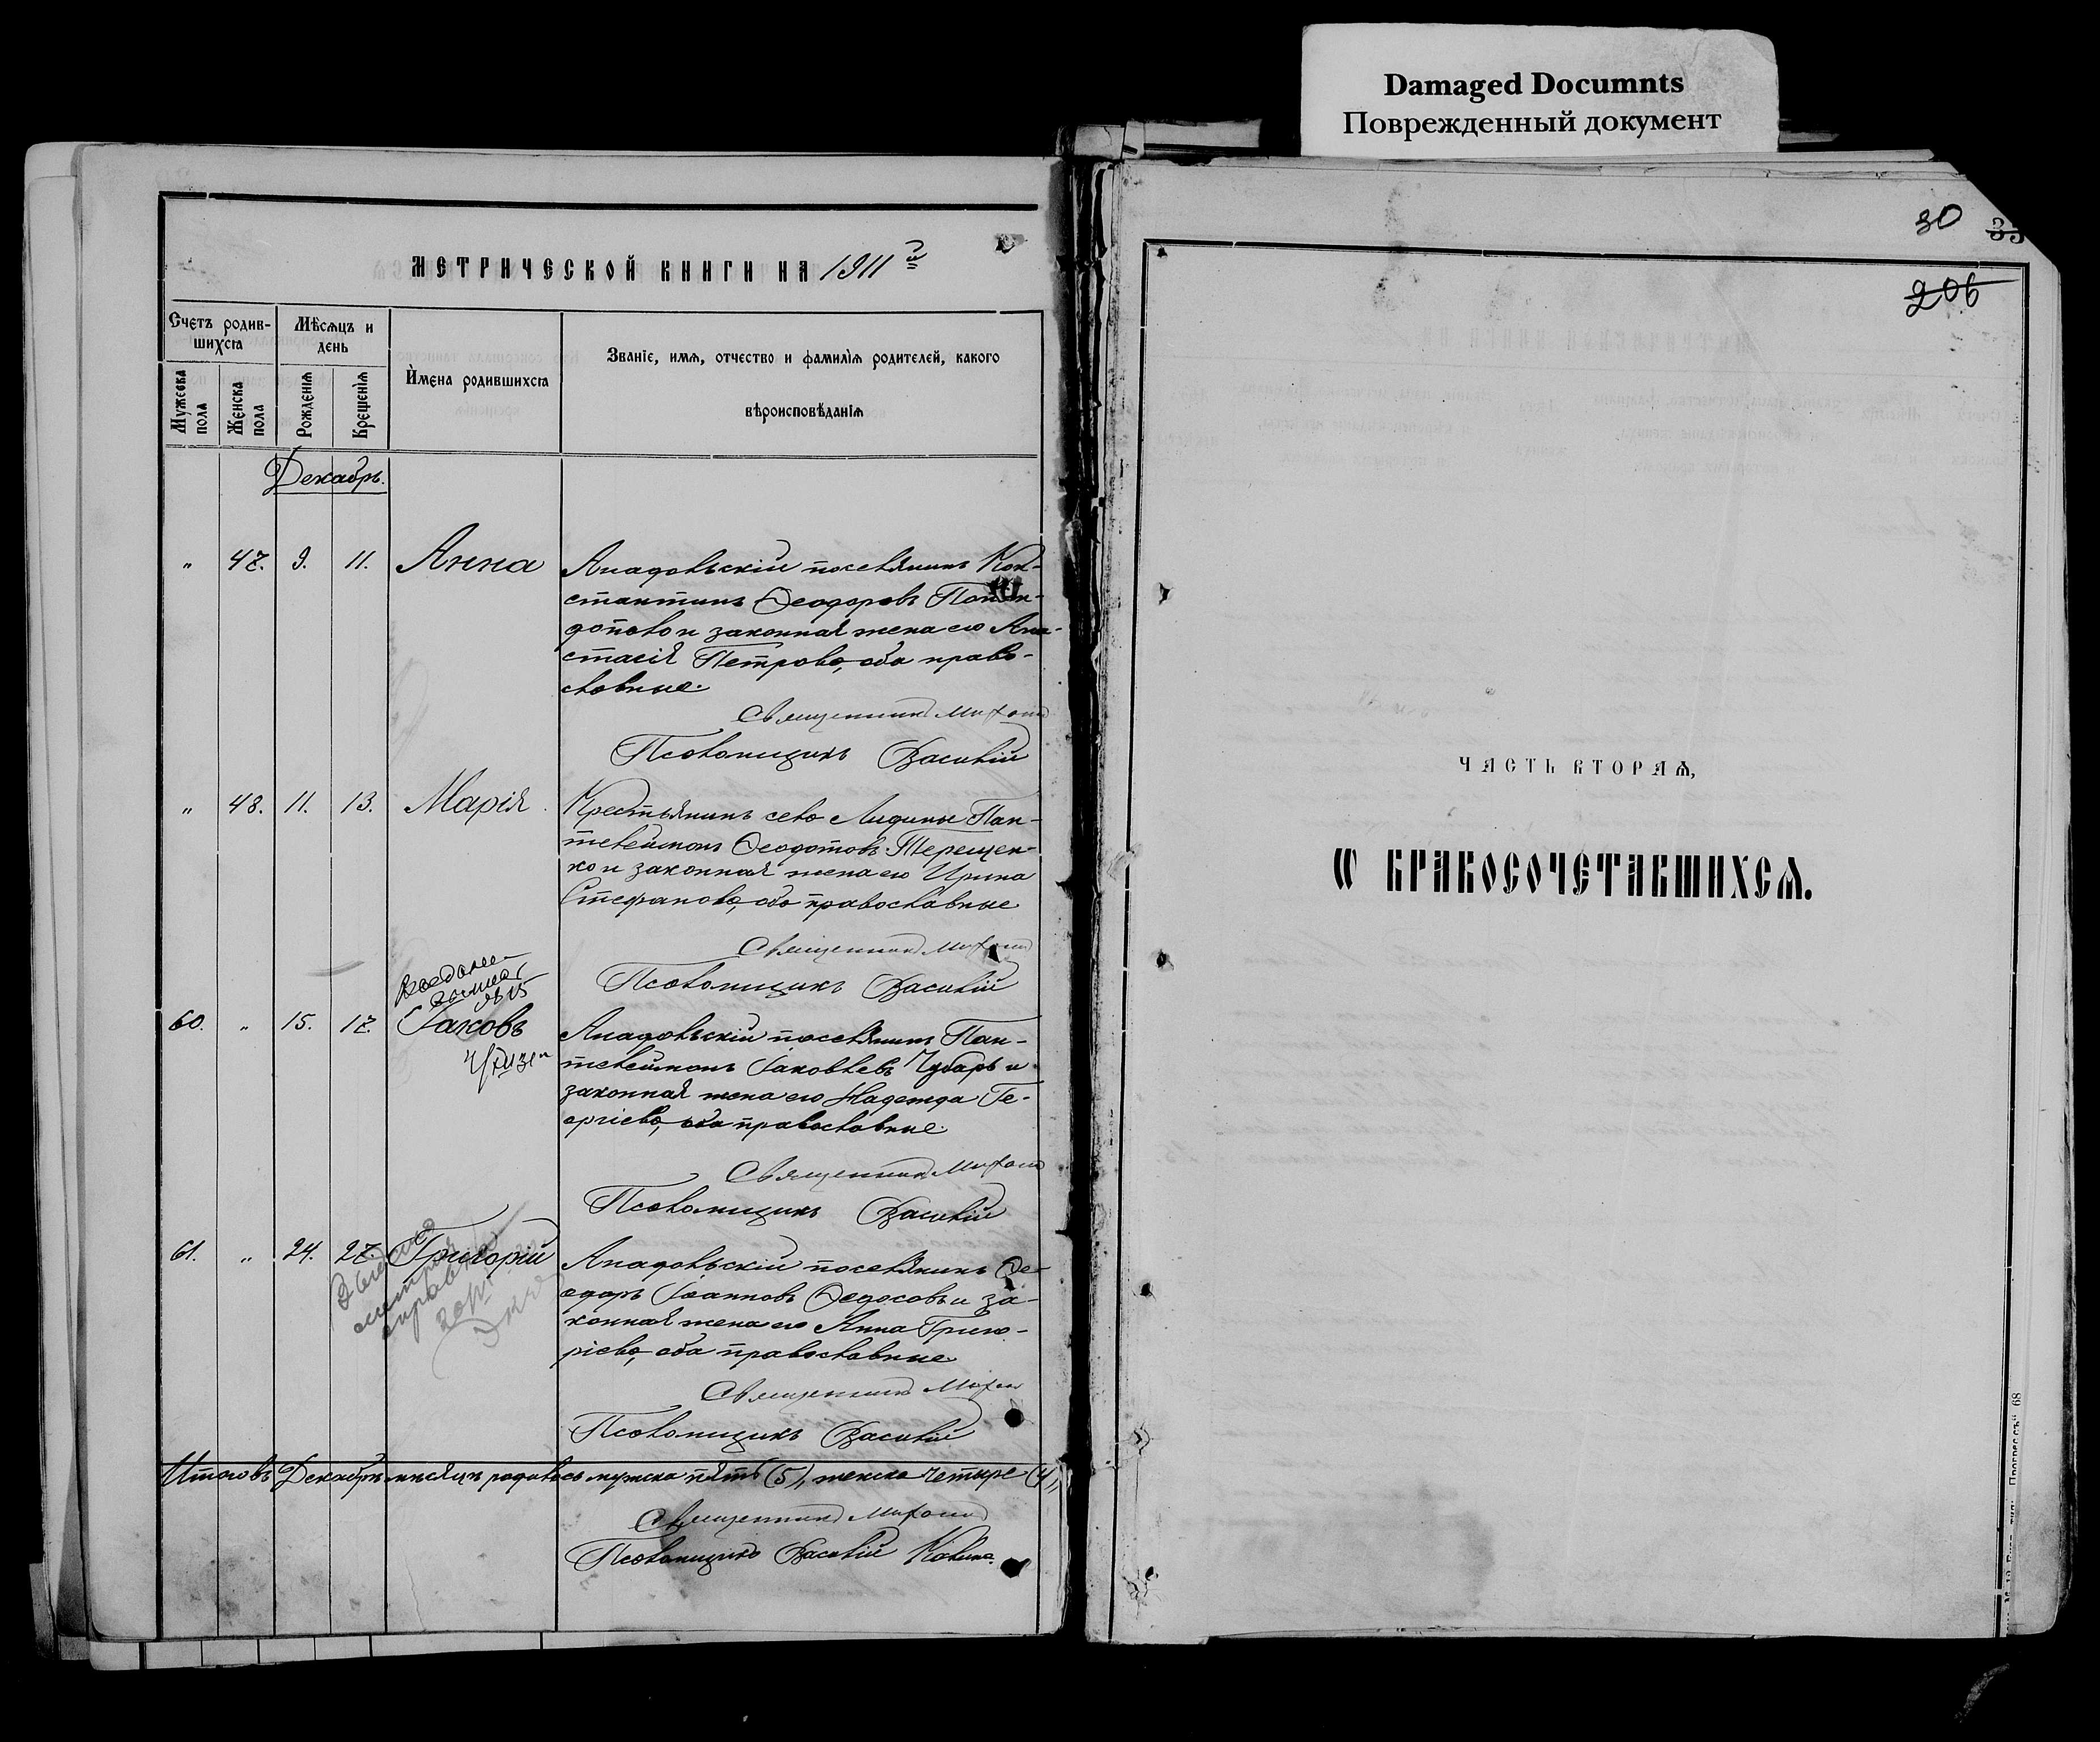 Damaged Documnts
Поврежденный документ
МЕТРИЧЕСКОЙ КНИГИ НА 1911 г.
Счетъ родив-
шихсѧ
Мѣсѧцъ и
день
Мужеска
пола
Женска
пола
Рожденїѧ
Крещенїѧ
Имена родившихсѧ
Званїе, имѧ, отчество и фамилїѧ родителей, какого
вѣроисповѣданїѧ
Декабрь.
" 47. 9. 11. Анна
Анадольскій поселянинъ Кон-
стантинъ Ѳеодоровъ
и законная жена его Ана-
стасія Петрова, оба право-
славные.
Священникъ
Псаломщикъ Василій
" 48. 11. 13. Марія
Крестьянинъ села Пан-
телеймонъ Ѳеодотовъ Терещен-
ко и законная жена его Ирина
Стефанова, оба православные
Священникъ
Псаломщикъ Василій
60. " 15. 17. Іаковъ
Анадольскій поселянинъ Пан-
телеймонъ Іаковлевъ Чубарь и
законная жена его Надежда Ге-
оргіева, оба православные.
Священникъ
Псаломщикъ Василій
61. " 24. 27. Григорій
Анадольскій поселянинъ Ѳе-
одоръ Іоанновъ Ѳедосовъ и за-
конная жена его Анна Григо-
ріева, оба православные
Священникъ
Псаломщикъ Василій
Итого въ Декабрѣ мѣсяцѣ родилось мужска пять (5), женска четыре (4)
Священникъ
Псаломщикъ Василій
30
35
206
ЧАСТЬ ВТОРАѦ,
Ѡ БРАКОСОЧЕТАВШИХСѦ.